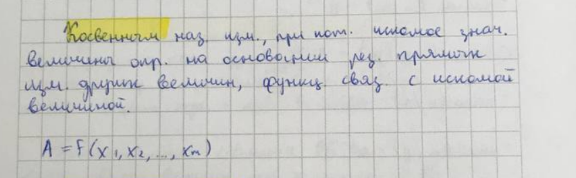 Косвенным наз. изм., при кот. искомое знач.
величины опр. на основании рез. прямых
изм. других величин, функц. связ с искомой
величиной.
A = f(x₁, x₂, ..., xₙ)